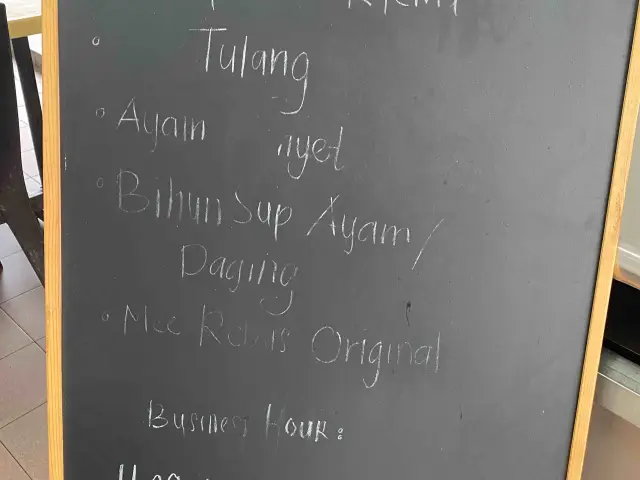 Tulang
Ayam
Bihun Sup Ayam/
Daging
Mee Original
Business Hour: